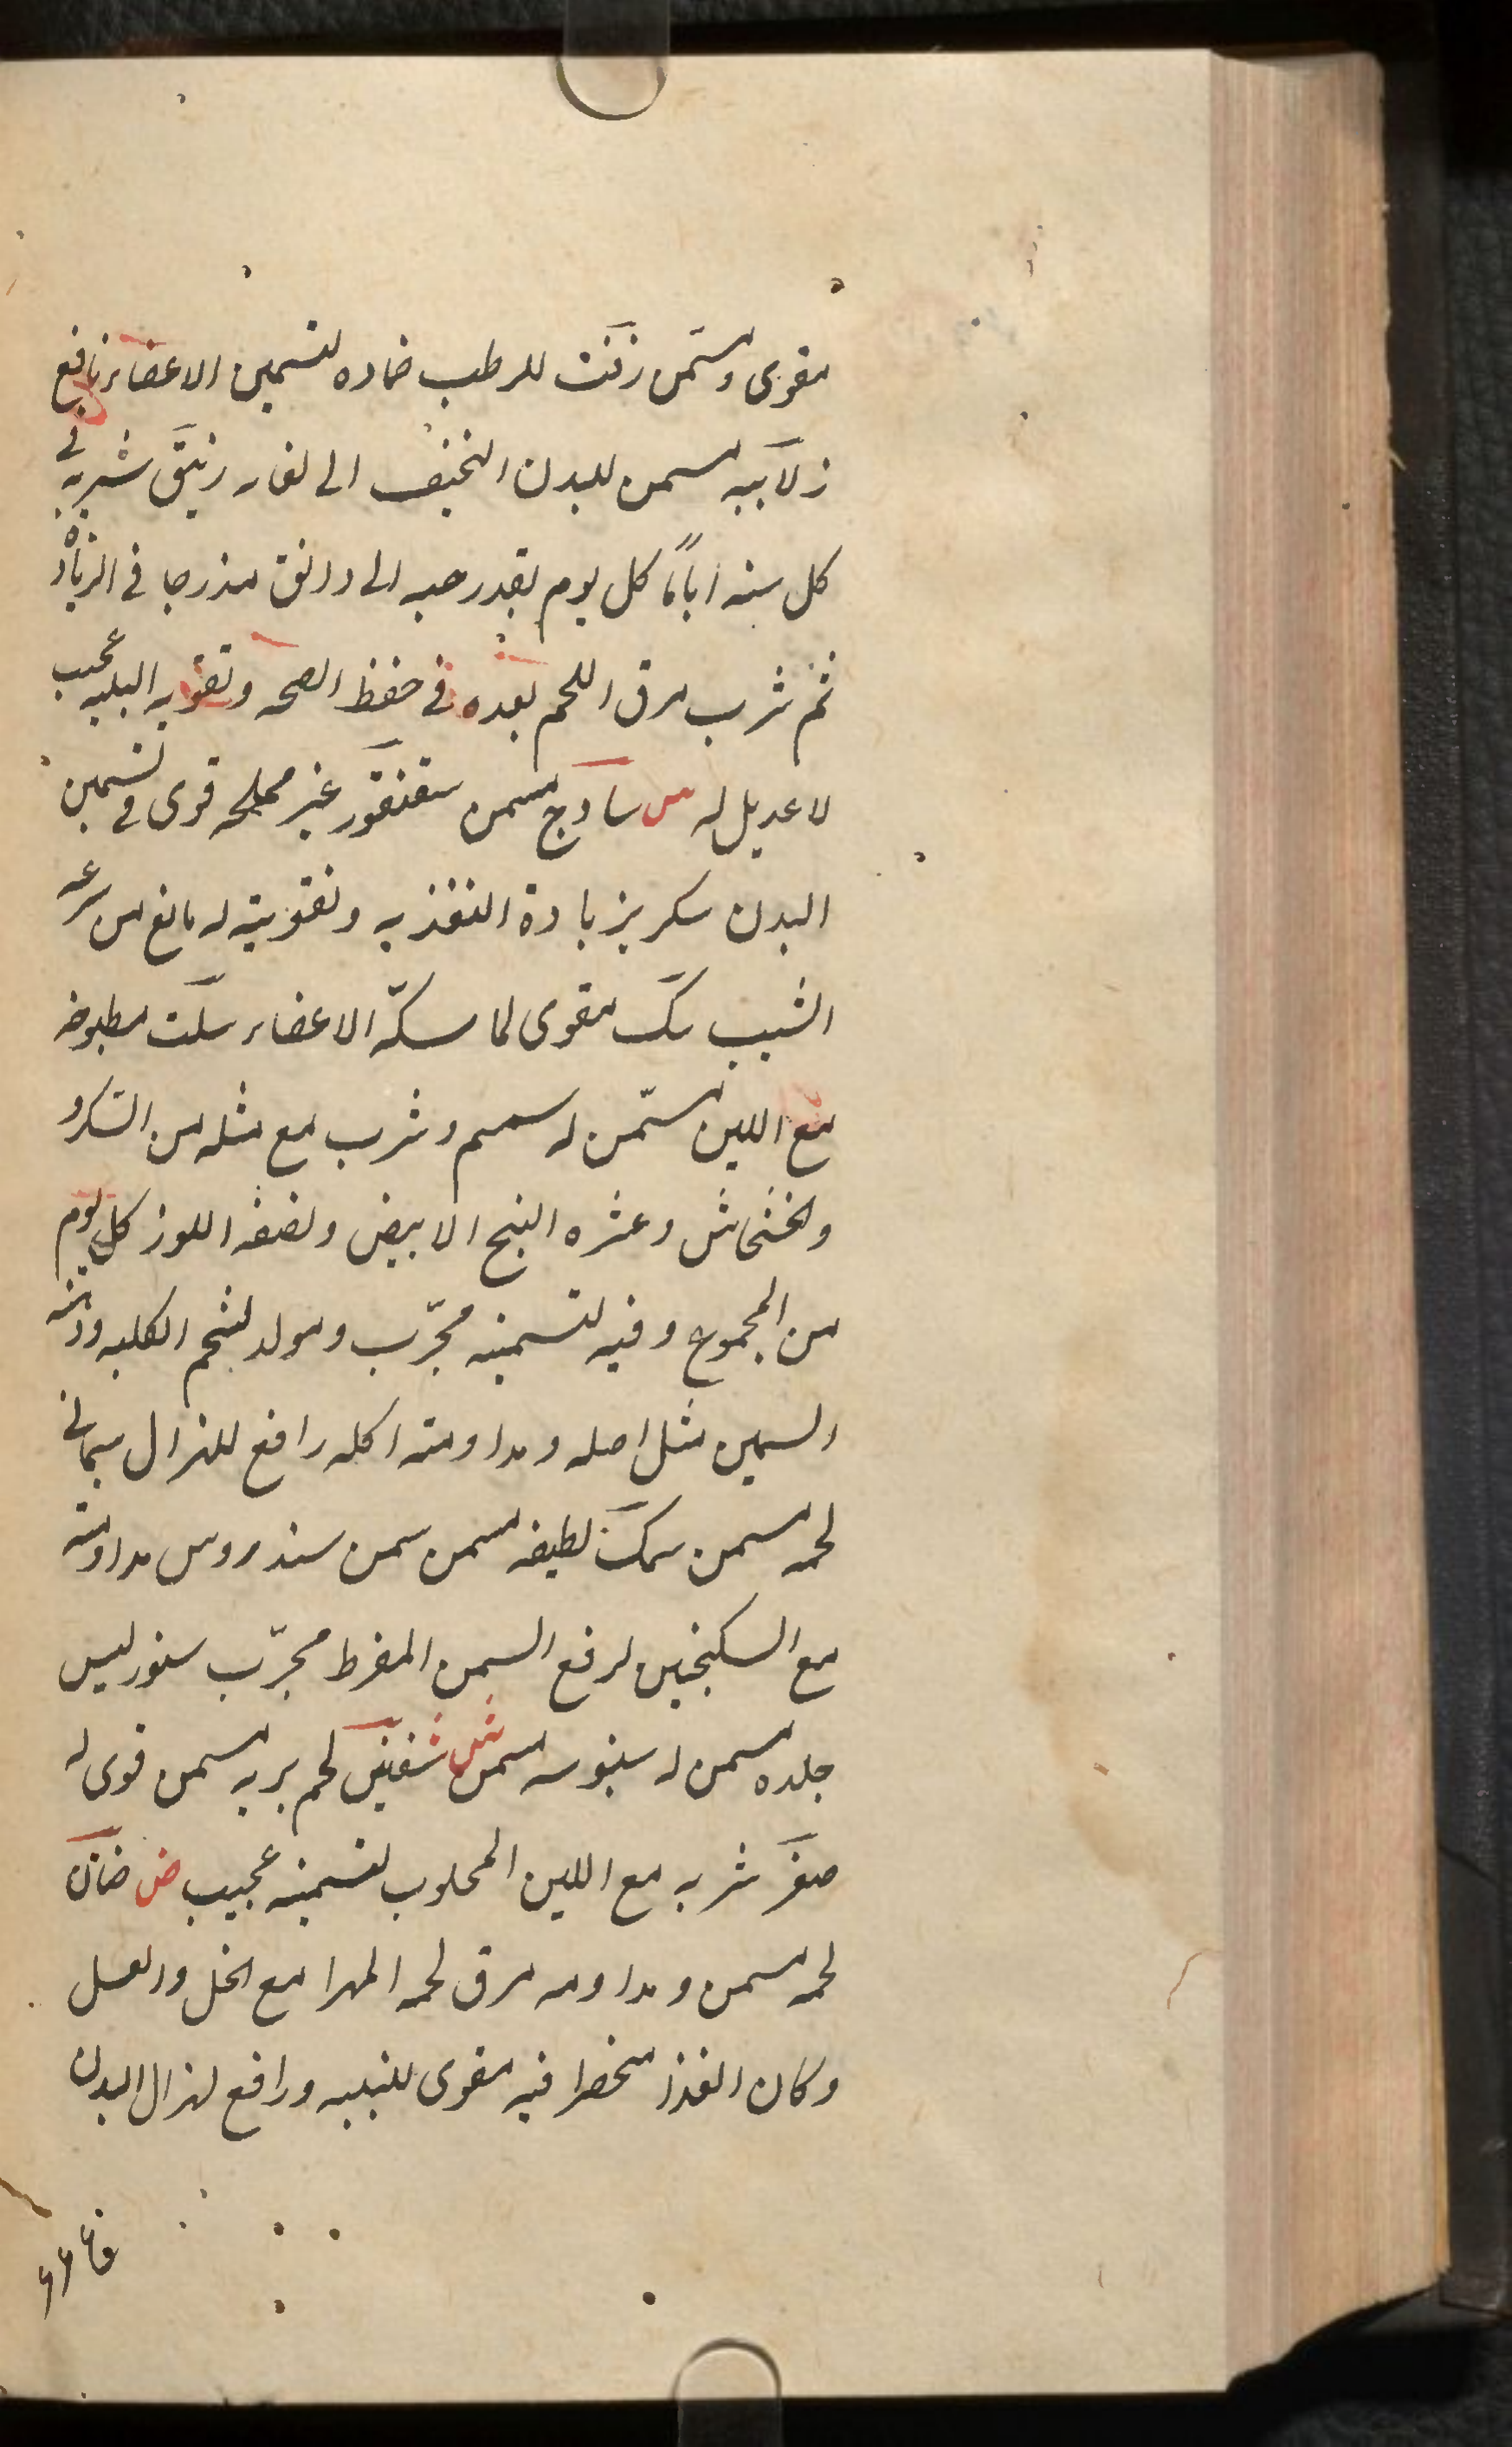 مقوى ومسمن زفت للرطب ضماده لتسمين الاعضاء نافع
زلابيه مسمن للبدن النحيف الى الغايه زيبق شربه فى
كل سنه اياما كل يوم بقدر حبه الى دانق متدرجا فى الزياده
ثم شرب مرق اللحم بعده فى حفظ الصحه وتقويه البنيه عجيب
لا عديل له س ساذج مسمن سقنقور غير مملحه قوى فى تسمين
البدن سكر بزيادة التغذيه وتقويته له مانع من سرعه
الشيب سك مقوى لماسكة الاعضاء سلت مطبوخه
مع اللبن مسمن له سمسم وشرب مع مثله من السكر و
والخشخاش وعشره البنج الابيض ونصفه اللوز كل يوم
من المجموع وقيه لتسمينه مجرّب ومولد لشحم الكليه ودهنه
السمين مثل اصله ومداومته اكله رافع للهزال سمانى
لحمه مسمن سمك لطيفه مسمن سمن سندروس مداومته
مع السكنجبين لرفع السمن المفرط مجرّب سنور لبس
جلده مسمن له سنبوسه مسمن ش شفنين لحم بريه مسمن قوى له
صقر شربه مع اللبن المحلوب لتسمينه عجيب ض ضان
لحمه مسمن ومداومه مرق لحمه المهرا مع الخل والعسل
وكان الغذا منحصرا فيه مقوى للبنيه ورافع لهزال البدن